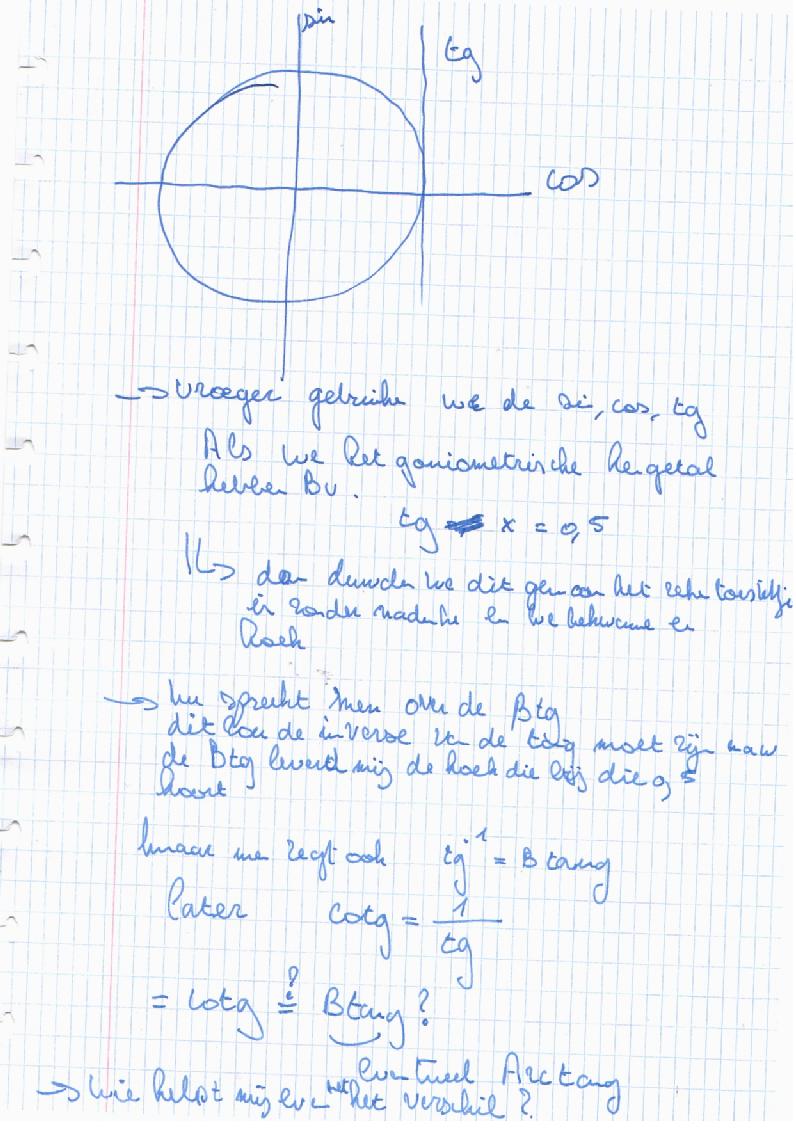 sin
tg
cos
→ vroeger gebruike we de si, cos, tg
Als we het goniometrische kengetal
hebben Bv.
tg x = 0,5
dan we dit gewoon het
in zonder nadenke en we bekwame en
hoek
→ Nu spreekt men over de Btg
dit zou de inverse van de tang moet zijn maw
de Btg levert mij de hoek die bij die 0,5
hoort
maar me zegt ook tg⁻¹ = B tang
Later cotg = 1/tg
= cotg ≟ Btang?
eventueel Arctang
→ wie helpt mij even met het verschil?